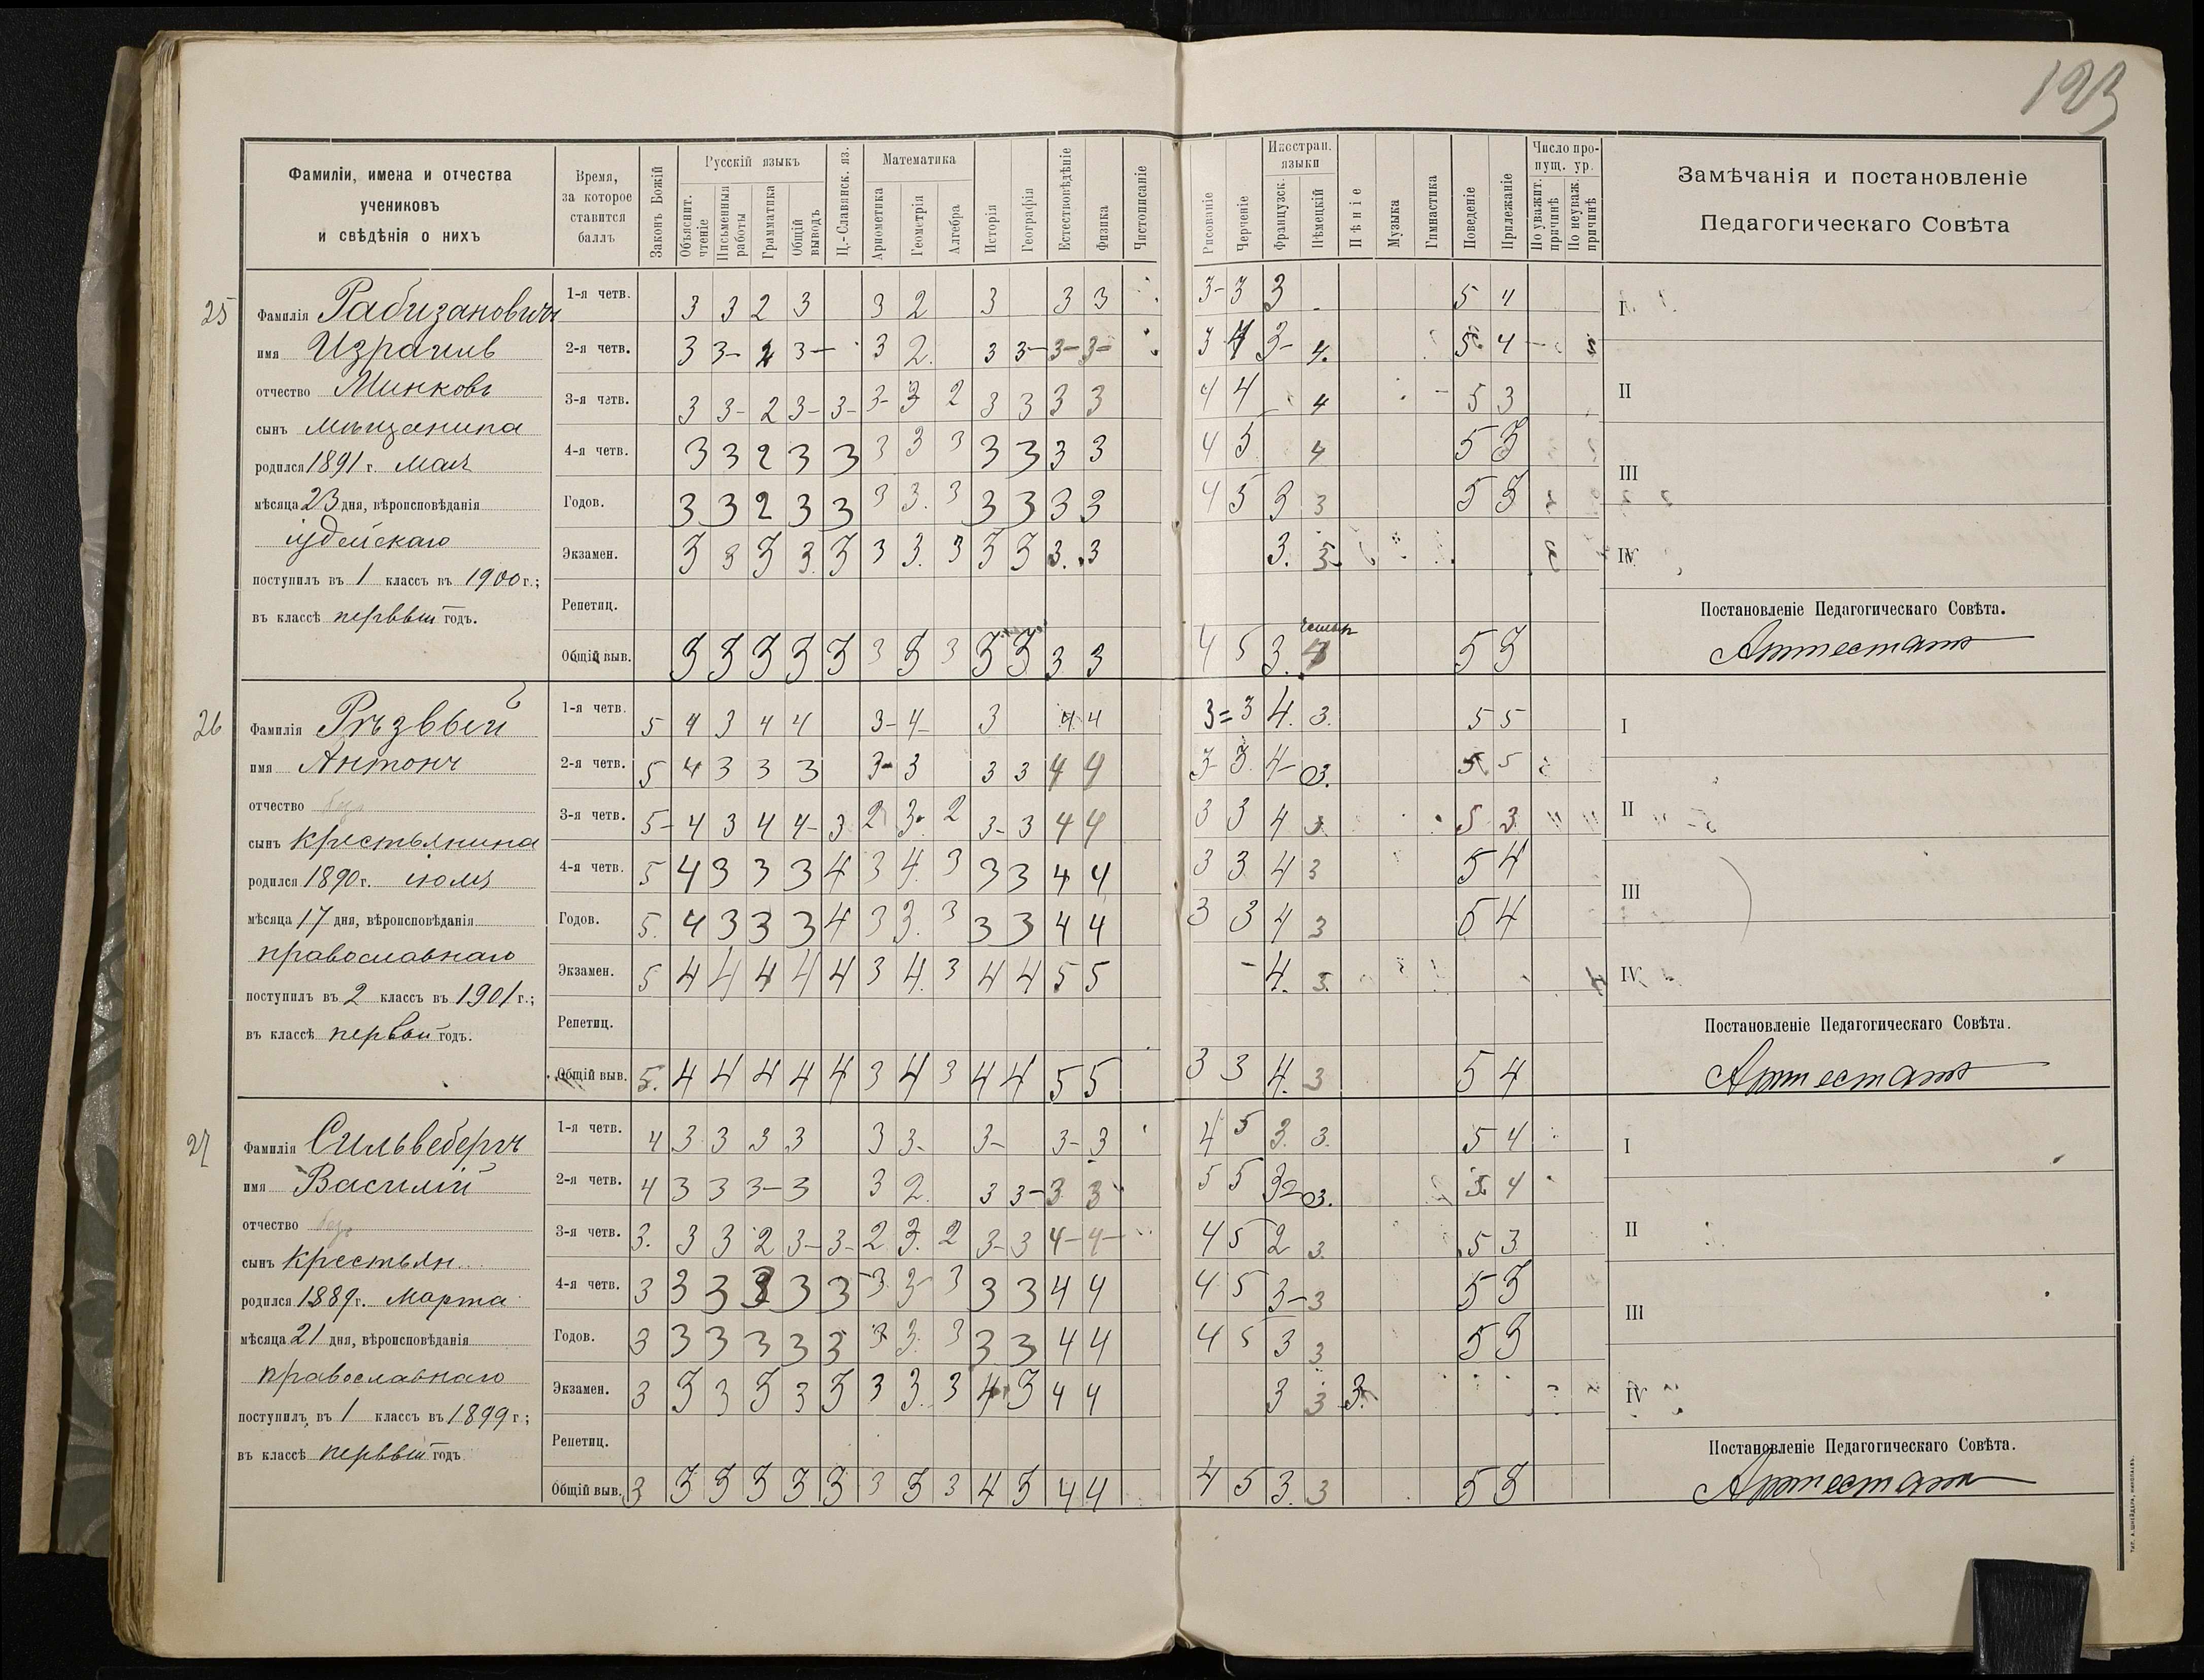 123
Фамиліи, имена и отчества
учениковъ
и свѣдѣнія о нихъ
Время,
за которое
ставится
баллъ
Законъ Божій
Русскій языкъ
Объяснит. чтеніе
Письменныя работы
Грамматика
Общій выводъ
Ц.-Славянск. яз.
Математика
Ариѳметика
Геометрія
Алгебра
Исторія
Географія
Естествовѣдѣніе
Физика
Чистописаніе
Рисованіе
Черченіе
Иностран. языки
Французск.
Нѣмецкій
Пѣніе
Музыка
Гимнастика
Поведеніе
Прилежаніе
Число пропущ. ур.
По уважит. причинѣ
По неуваж. причинѣ
Замѣчанія и постановленіе
Педагогическаго Совѣта
25
Фамилія Рабизановичъ
имя Израиль
отчество Минковъ
сынъ мѣщанина
родился 1891 г. Мая
мѣсяца 23 дня, вѣроисповѣданія
іудейскаго
поступилъ въ 1 классъ въ 1900 г.;
въ классѣ первый годъ.
1-я четв. 3 3 2 3 3 2 3 3 3 3- 3 3 5 4
2-я четв. 3 3- 2 3- 3 2. 3 3- 3- 3- 3 4 3- 4. 5 4
3-я четв. 3 3- 2 3- 3- 3- 3 2 3 3 3 3 4 4 4 5 3
4-я четв. 3 3 2 3 3 3 3 3 3 3 3 3 4 5 4 5 3
Годов. 3 3 2 3 3 3 3. 3 3 3 3 3 4 5 3 3 5 3
Экзамен. 3 3 3 3. 3 3 3. 3 3 3 3. 3 3.
Репетиц.
Общій выв. 3 3 3 3 3 3 3 3 3 3 3 3 4 5 3. 5 3
I
II
III
IV
Постановленіе Педагогическаго Совѣта.
Аттестатъ
26
Фамилія Рѣзвый
имя Антонъ
отчество без
сынъ крестьянина
родился 1890 г. іюля
мѣсяца 17 дня, вѣроисповѣданія
православнаго
поступилъ въ 2 классъ въ 1901 г.;
въ классѣ первый годъ.
1-я четв. 5 4 3 4 4 3- 4- 3 4 4 3= 3 4. 3. 5 5
2-я четв. 5 4 3 3 3 3- 3 3 3 4 4 3- 3 4- 3. 5 5
3-я четв. 5- 4 3 4 4- 3 2 3. 2 3- 3 4 4 3 3 4 3 5 3
4-я четв. 5 4 3 3 3 4 3 4. 3 3 3 4 4 3 3 4 3 5 4
Годов. 5. 4 3 3 3 4 3 3. 3 3 3 4 4 3 3 4 3 5 4
Экзамен. 5 4 4 4 4 4 3 4. 3 4 4 5 5 4. 3.
Репетиц.
Общій выв. 5. 4 4 4 4 4 3 4 3 4 4 5 5 3 3 4. 3 5 4
I
II
III
IV
Постановленіе Педагогическаго Совѣта.
Аттестатъ
27
Фамилія Сильвебергъ
имя Василій
отчество без
сынъ крестьян.
родился 1889 г. Марта
мѣсяца 21 дня, вѣроисповѣданія
православнаго
поступилъ въ 1 классъ въ 1899 г.;
въ классѣ первый годъ.
1-я четв. 4 3 3 3 3 3 3- 3- 3- 3 4 5 3. 3. 5 4
2-я четв. 4 3 3 3- 3 3 2. 3 3- 3 3 5 5 3. 5 4
3-я четв. 3. 3 3 2 3- 3- 2 3. 2 3- 3 4- 4- 4 5 2 3. 5 3
4-я четв. 3 3 3 3 3 3 3 3- 3 3 3 4 4 4 5 3- 3 5 3
Годов. 3 3 3 3 3 3 3 3. 3 3 3 4 4 4 5 3 3 5 3
Экзамен. 3 3 3 3 3 3 3 3. 3 4 3 4 4 3 3 3.
Репетиц.
Общій выв. 3 3 3 3 3 3 3 3 3 4 3 4 4 4 5 3. 3 5 3
I
II
III
IV
Постановленіе Педагогическаго Совѣта.
Аттестатъ